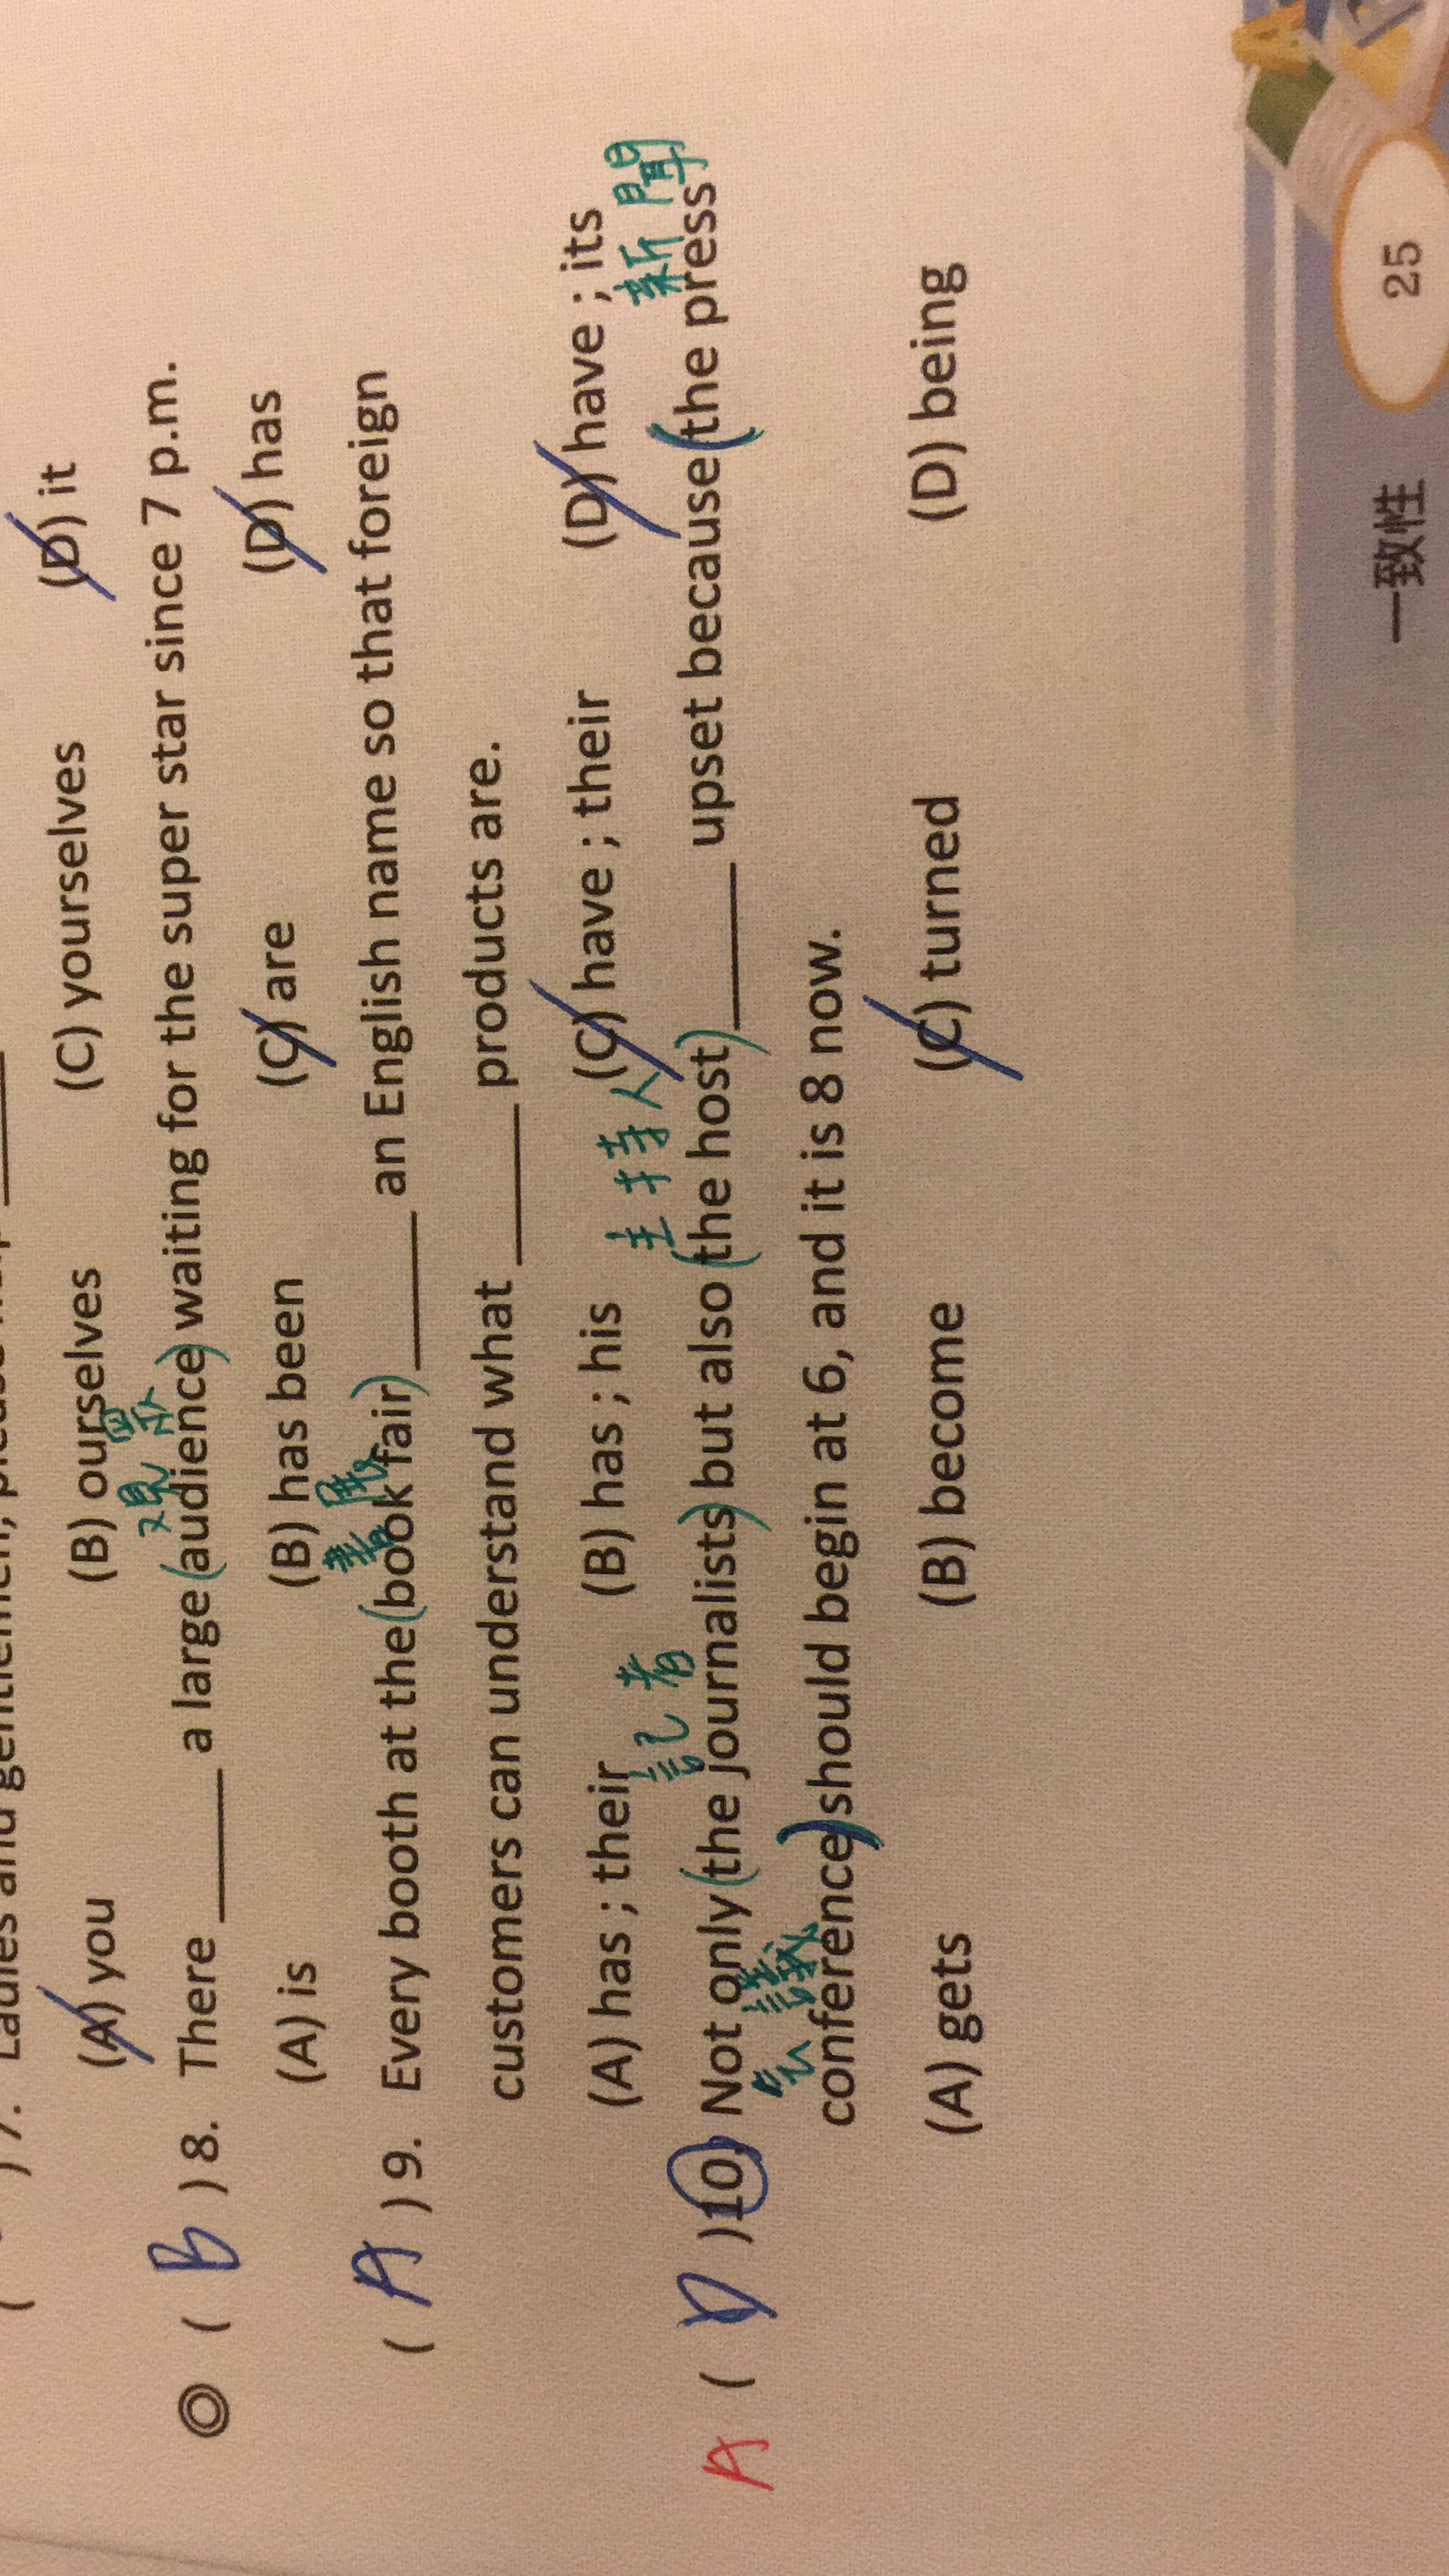 (A) you (B) ourselves (C) yourselves (D) it
觀眾
◎ ( B ) 8. There ____ a large (audience) waiting for the super star since 7 p.m.
(A) is (B) has been (C) are (D) has
書展
( A ) 9. Every booth at the (book fair) ____ an English name so that foreign
customers can understand what ____ products are.
(A) has ; their (B) has ; his (C) have ; their (D) have ; its
記者 主持人 新聞
A ( D ) 10. Not only (the journalists) but also (the host) ____ upset because (the press
會議
conference) should begin at 6, and it is 8 now.
(A) gets (B) become (C) turned (D) being
一致性 25